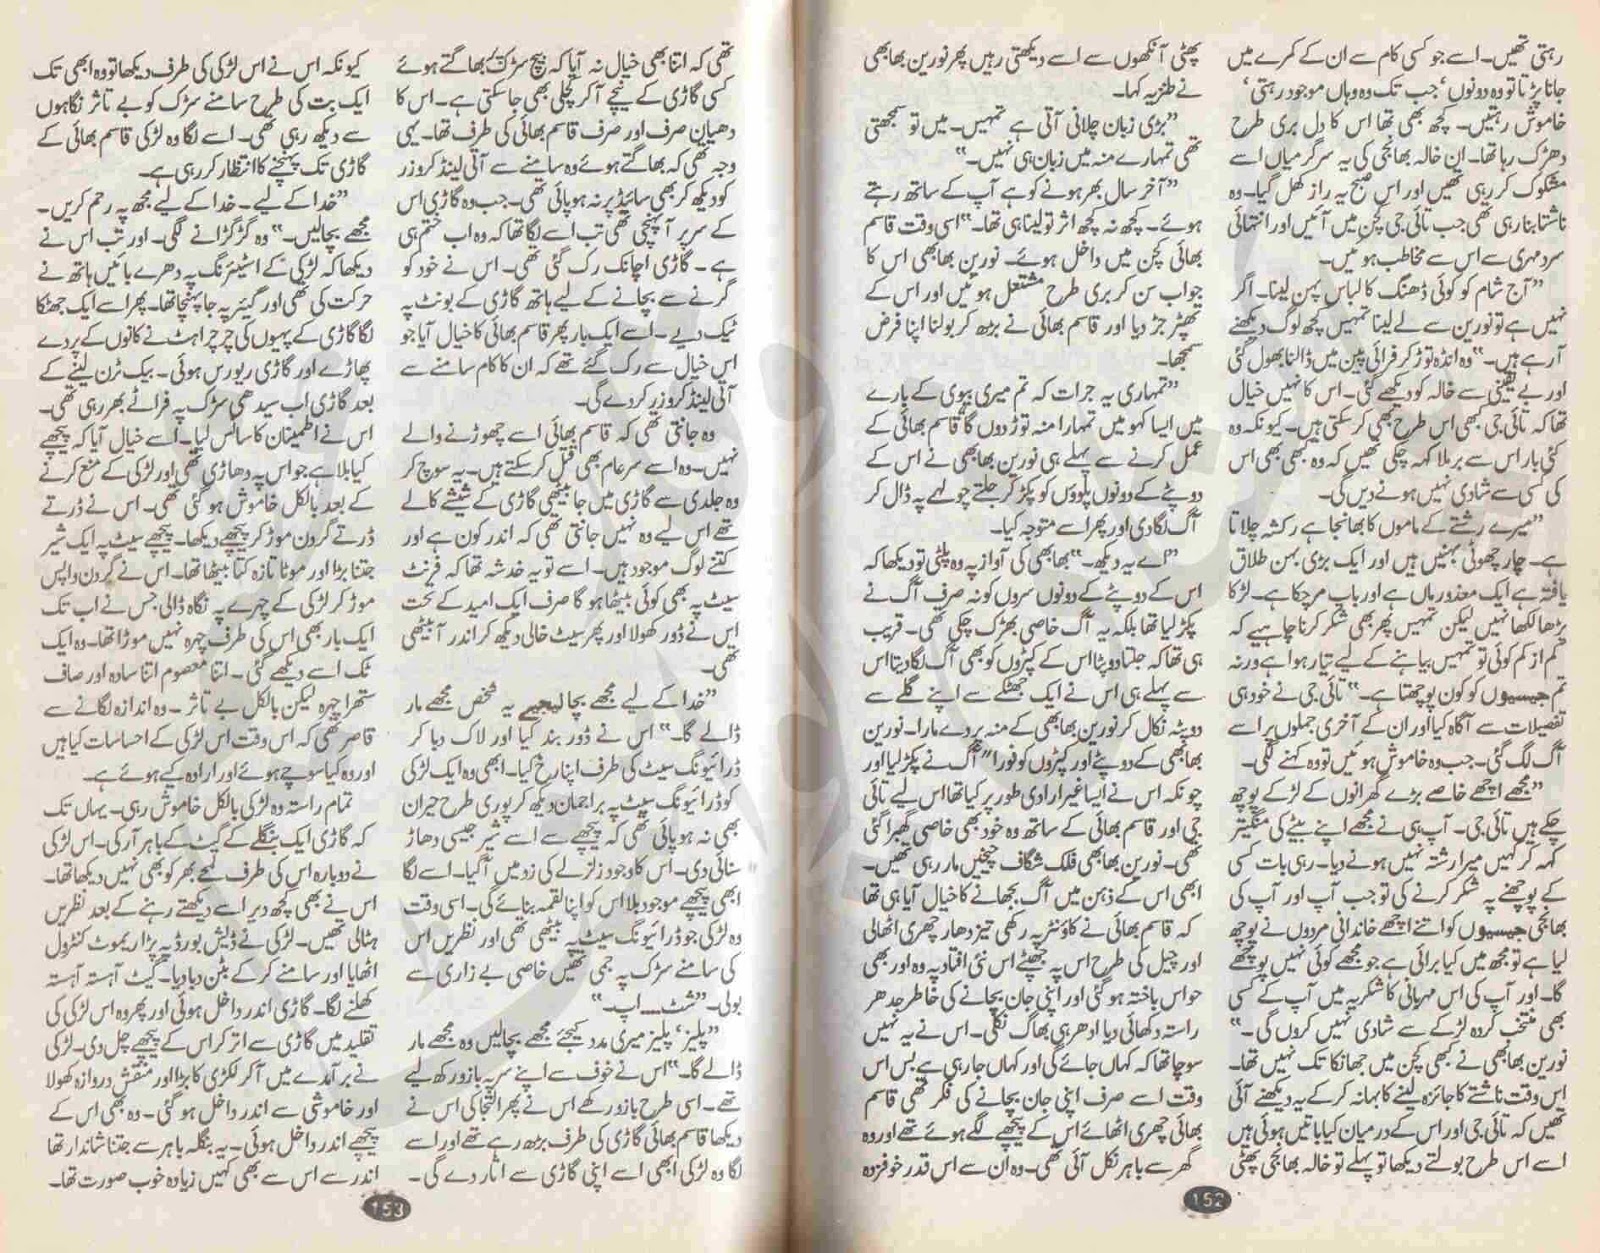 رہتی تھیں۔ اسے جو کسی کام سے ان کے کمرے میں
جانا پڑتا تو وہ دونوں‘ جب تک وہ وہاں موجود رہتی‘
خاموش رہتیں۔ کچھ بھی تھا اس کا دل بری طرح
دھڑک رہا تھا۔ ان خالہ بھانجی کی یہ سرگرمیاں اسے
مشکوک کر رہی تھیں اور اس صبح یہ راز کھل گیا۔ وہ
ناشتا بنا رہی تھی جب تائی جی کچن میں آئیں اور انتہائی
سرد مہری سے اس سے مخاطب ہوئیں۔
”آج شام کو کوئی ڈھنگ کا لباس پہن لینا۔ اگر
نہیں ہے تو نورین سے لے لینا تمہیں کچھ لوگ دیکھنے
آرہے ہیں۔“ وہ انڈہ توڑ کر فرائی پین میں ڈالنا بھول گئی
اور بے یقینی سے خالہ کو دیکھے گئی۔ اس کا نہیں خیال
تھا کہ تائی جی بھی اس طرح بھی کر سکتی ہیں۔ کیونکہ وہ
کئی بار اس سے برملا کہہ چکی تھیں کہ وہ کبھی بھی اس
کی کسی سے شادی نہیں ہونے دیں گی۔
”میرے رشتے کے ماموں کا بھانجا ہے رکشہ چلاتا
ہے۔ چار چھوٹی بہنیں ہیں اور ایک بڑی بہن طلاق
یافتہ ہے ایک معذور ماں ہے اور باپ مرچکا ہے۔ لڑکا
پڑھا لکھا نہیں لیکن تمہیں پھر بھی شکر کرنا چاہیے کہ
کم از کم کوئی تو تمہیں بیاہنے کے لیے تیار ہوا ہے ورنہ
تم جیسیوں کو کون پوچھتا ہے۔“ تائی جی نے خود ہی
تفصیلات سے آگاہ کیا اور ان کے آخری جملوں پر اسے
آگ لگ گئی۔ جب وہ خاموش ہوئیں تو وہ کہنے لگی۔
”مجھے اچھے خاصے بڑے گھرانوں کے لڑکے پوچھ
چکے ہیں تائی جی۔ آپ ہی نے مجھے اپنے بیٹے کی منگیتر
کہہ کر کہیں میرا رشتہ نہیں ہونے دیا۔ رہی بات کسی
کے پوچھنے پہ شکر کرنے کی تو جب آپ اور آپ کی
بھانجی جیسیوں کو اتنے اچھے خاندانی مردوں نے پوچھ
لیا ہے تو مجھ میں کیا برائی ہے جو مجھے کوئی نہیں پوچھے
گا۔ اور آپ کی اس مہربانی کا شکریہ میں آپ کے کسی
بھی منتخب کردہ لڑکے سے شادی نہیں کروں گی۔“
نورین بھابھی نے کبھی کچن میں جھانکا تک نہیں تھا۔
اس وقت ناشتے کا جائزہ لینے کا بہانہ کر کے یہ دیکھنے آئی
تھیں کہ تائی جی اور اس کے درمیان کیا باتیں ہوئی ہیں
اسے اس طرح بولتے دیکھا تو پہلے تو خالہ بھانجی پھٹی
پھٹی آنکھوں سے اسے دیکھتی رہیں پھر نورین بھابھی
نے طنزیہ کہا۔
”بڑی زبان چلانی آتی ہے تمہیں۔ میں تو سمجھتی
تھی تمہارے منہ میں زبان ہی نہیں۔“
”آخر سال بھر ہونے کو ہے آپ کے ساتھ رہتے
ہوئے۔ کچھ نہ کچھ اثر تو لینا ہی تھا۔“ اسی وقت قاسم
بھائی کچن میں داخل ہوئے۔ نورین بھابھی اس کا
جواب سن کر بری طرح مشتعل ہوئیں اور اس کے
تھپڑ جڑ دیا اور قاسم بھائی نے بڑھ کر بولنا اپنا فرض
سمجھا۔
”تمہاری یہ جرات کہ تم میری بیوی کے بارے
میں ایسا کہو میں تمہارا منہ توڑ دوں گا“ قاسم بھائی کے
عمل کرنے سے پہلے ہی نورین بھابھی نے اس کے
دوپٹے کے دونوں پلوؤں کو پکڑ کر جلتے چولہے پہ ڈال کر
آگ لگا دی اور پھر اسے متوجہ کیا۔
”اے یہ دیکھ۔“ بھابھی کی آواز پہ وہ پلٹی تو دیکھا کہ
اس کے دوپٹے کے دونوں سروں کو نہ صرف آگ نے
پکڑ لیا تھا بلکہ یہ آگ خاصی بھڑک چکی تھی۔ قریب
ہی تھا کہ جلتا دوپٹا اس کے کپڑوں کو بھی آگ لگا دیتا اس
سے پہلے ہی اس نے ایک جھٹکے سے اپنے گلے سے
دوپٹہ نکال کر نورین بھابھی کے منہ پر دے مارا۔ نورین
بھابھی کے دوپٹے اور کپڑوں کو فورا“ آگ نے پکڑ لیا اور
چونکہ اس نے ایسا غیر ارادی طور پر کیا تھا اس لیے تائی
جی اور قاسم بھائی کے ساتھ وہ خود بھی خاصی گھبرا گئی
تھی۔ نورین بھابھی فلک شگاف چیخیں مار رہی تھیں۔
ابھی اس کے ذہن میں آگ بجھانے کا خیال آیا ہی تھا
کہ قاسم بھائی نے کاؤنٹر پہ رکھی تیز دھار چھری اٹھالی
اور چیل کی طرح اس پہ جھپٹے اس نئی افتاد پہ وہ اور بھی
حواس باختہ ہو گئی اور اپنی جان بچانے کی خاطر جدھر
راستہ دکھائی دیا ادھر ہی بھاگ نکلی۔ اس نے یہ نہیں
سوچا تھا کہ کہاں جائے گی اور کہاں جا رہی ہے بس اس
وقت اسے صرف اپنی جان بچانے کی فکر تھی قاسم
بھائی چھری اٹھائے اس کے پیچھے لگے ہوئے تھے اور وہ
گھر سے باہر نکل آئی تھی۔ وہ ان سے اس قدر خوفزدہ
152
تھی کہ اتنا بھی خیال نہ آیا کہ بیچ سڑک بھاگتے ہوئے
کسی گاڑی کے نیچے آکر کچلی بھی جا سکتی ہے۔ اس کا
دھیان صرف اور صرف قاسم بھائی کی طرف تھا۔ یہی
وجہ تھی کہ بھاگتے ہوئے وہ سامنے سے آتی لینڈ کروزر
کو دیکھ کر بھی سائیڈ پر نہ ہو پائی تھی۔ جب وہ گاڑی اس
کے سر پر آپہنچی تھی تب اسے لگا تھا کہ وہ اب ختم ہی
ہے۔ گاڑی اچانک رک گئی تھی۔ اس نے خود کو
گرنے سے بچانے کے لیے ہاتھ گاڑی کے بونٹ پہ
ٹیک دیے۔ اسے ایک بار پھر قاسم بھائی کا خیال آیا جو
اس خیال سے رک گئے تھے کہ ان کا کام سامنے سے
آتی لینڈ کروزر کر دے گی۔
وہ جانتی تھی کہ قاسم بھائی اسے چھوڑنے والے
نہیں۔ وہ اسے سرعام بھی قتل کر سکتے ہیں۔ یہ سوچ کر
وہ جلدی سے گاڑی میں جا بیٹھی گاڑی کے شیشے کالے
تھے اس لیے وہ نہیں جانتی تھی کہ اندر کون ہے اور
کتنے لوگ موجود ہیں۔ اسے تو یہ خدشہ تھا کہ فرنٹ
سیٹ پہ بھی کوئی بیٹھا ہو گا صرف ایک امید کے تحت
اس نے ڈور کھولا اور پھر سیٹ خالی دیکھ کر اندر آ بیٹھی
تھی۔
”خدا کے لیے مجھے بچا لیجیے یہ شخص مجھے مار
ڈالے گا۔“ اس نے ڈور بند کیا اور لاک دبا کر
ڈرائیونگ سیٹ کی طرف اپنا رخ کیا۔ ابھی وہ ایک لڑکی
کو ڈرائیونگ سیٹ پہ براجمان دیکھ کر پوری طرح حیران
بھی نہ ہو پائی تھی کہ پیچھے سے اسے شیر جیسی دھاڑ
سنائی دی۔ اس کا وجود زلزلے کی زد میں آگیا۔ اسے لگا
ابھی پیچھے موجود بلا اس کو اپنا لقمہ بنائے گی۔ اسی وقت
وہ لڑکی جو ڈرائیونگ سیٹ پہ بیٹھی تھی اور نظریں اس
کی سامنے سڑک پہ جمی تھیں خاصی بے زاری سے
بولی۔ ”شٹ۔۔۔ اپ۔“
”پلیز‘ پلیز میری مدد کیجئے مجھے بچالیں وہ مجھے مار
ڈالے گا۔“ اس نے خوف سے اپنے سر پہ بازو رکھ لیے
تھے۔ اسی طرح بازو رکھے اس نے پھر التجا کی اس نے
دیکھا قاسم بھائی گاڑی کی طرف بڑھ رہے تھے اور اسے
لگا وہ لڑکی ابھی اسے اپنی گاڑی سے اتار دے گی۔
کیونکہ اس نے اس لڑکی کی طرف دیکھا تو وہ ابھی تک
ایک بت کی طرح سامنے سڑک کو بے تاثر نگاہوں
سے دیکھ رہی تھی۔ اسے لگا وہ لڑکی قاسم بھائی کے
گاڑی تک پہنچنے کا انتظار کر رہی ہے۔
”خدا کے لیے۔ خدا کے لیے مجھ پہ رحم کریں۔
مجھے بچالیں۔“ وہ گڑگڑانے لگی۔ اور تب اس نے
دیکھا کہ لڑکی کے اسٹیئرنگ پہ دھرے بائیں ہاتھ نے
حرکت کی تھی اور گیئر پہ جا پہنچا تھا۔ پھر اسے ایک جھٹکا
لگا گاڑی کے پہیوں کی چرچراہٹ نے کانوں کے پردے
پھاڑے اور گاڑی ریورس ہوئی۔ بیک ٹرن لینے کے
بعد گاڑی اب سیدھی سڑک پہ فراٹے بھر رہی تھی۔
اس نے اطمینان کا سانس لیا۔ اسے خیال آیا کہ پیچھے
کیا بلا ہے جو اس پہ دھاڑی تھی اور لڑکی کے منع کرنے
کے بعد بالکل خاموش ہو گئی تھی۔ اس نے ڈرتے
ڈرتے گردن موڑ کر پیچھے دیکھا۔ پیچھے سیٹ پہ ایک شیر
جتنا بڑا اور موٹا تازہ کتا بیٹھا تھا۔ اس نے گردن واپس
موڑ کر لڑکی کے چہرے پہ نگاہ ڈالی جس نے اب تک
ایک بار بھی اس کی طرف چہرہ نہیں موڑا تھا۔ وہ ایک
ٹک اسے دیکھے گئی۔ اتنا معصوم اتنا سادہ اور صاف
ستھرا چہرہ لیکن بالکل بے تاثر۔ وہ اندازہ لگانے سے
قاصر تھی کہ اس وقت اس لڑکی کے احساسات کیا ہیں
اور وہ کیا سوچے ہوئے اور ارادہ کیے ہوئے ہے۔
تمام راستہ وہ لڑکی بالکل خاموش رہی۔ یہاں تک
کہ گاڑی ایک بنگلے کے گیٹ کے باہر آرکی۔ اس لڑکی
نے دوبارہ اس کی طرف لمحے بھر کو بھی نہیں دیکھا تھا۔
اس نے بھی کچھ دیر اسے دیکھتے رہنے کے بعد نظریں
ہٹالی تھیں۔ لڑکی نے ڈیش بورڈ پہ پڑا ریموٹ کنٹرول
اٹھایا اور سامنے کر کے بٹن دبا دیا۔ گیٹ آہستہ آہستہ
کھلنے لگا۔ گاڑی اندر داخل ہوئی اور پھر وہ اس لڑکی کی
تقلید میں گاڑی سے اتر کر اس کے پیچھے چل دی۔ لڑکی
نے برآمدے میں آکر لکڑی کا بڑا اور منقش دروازہ کھولا
اور خاموشی سے اندر داخل ہو گئی۔ وہ بھی اس کے
پیچھے اندر داخل ہوئی۔ یہ بنگلہ باہر سے جتنا شاندار تھا
اندر سے اس سے بھی کہیں زیادہ خوب صورت تھا۔
153